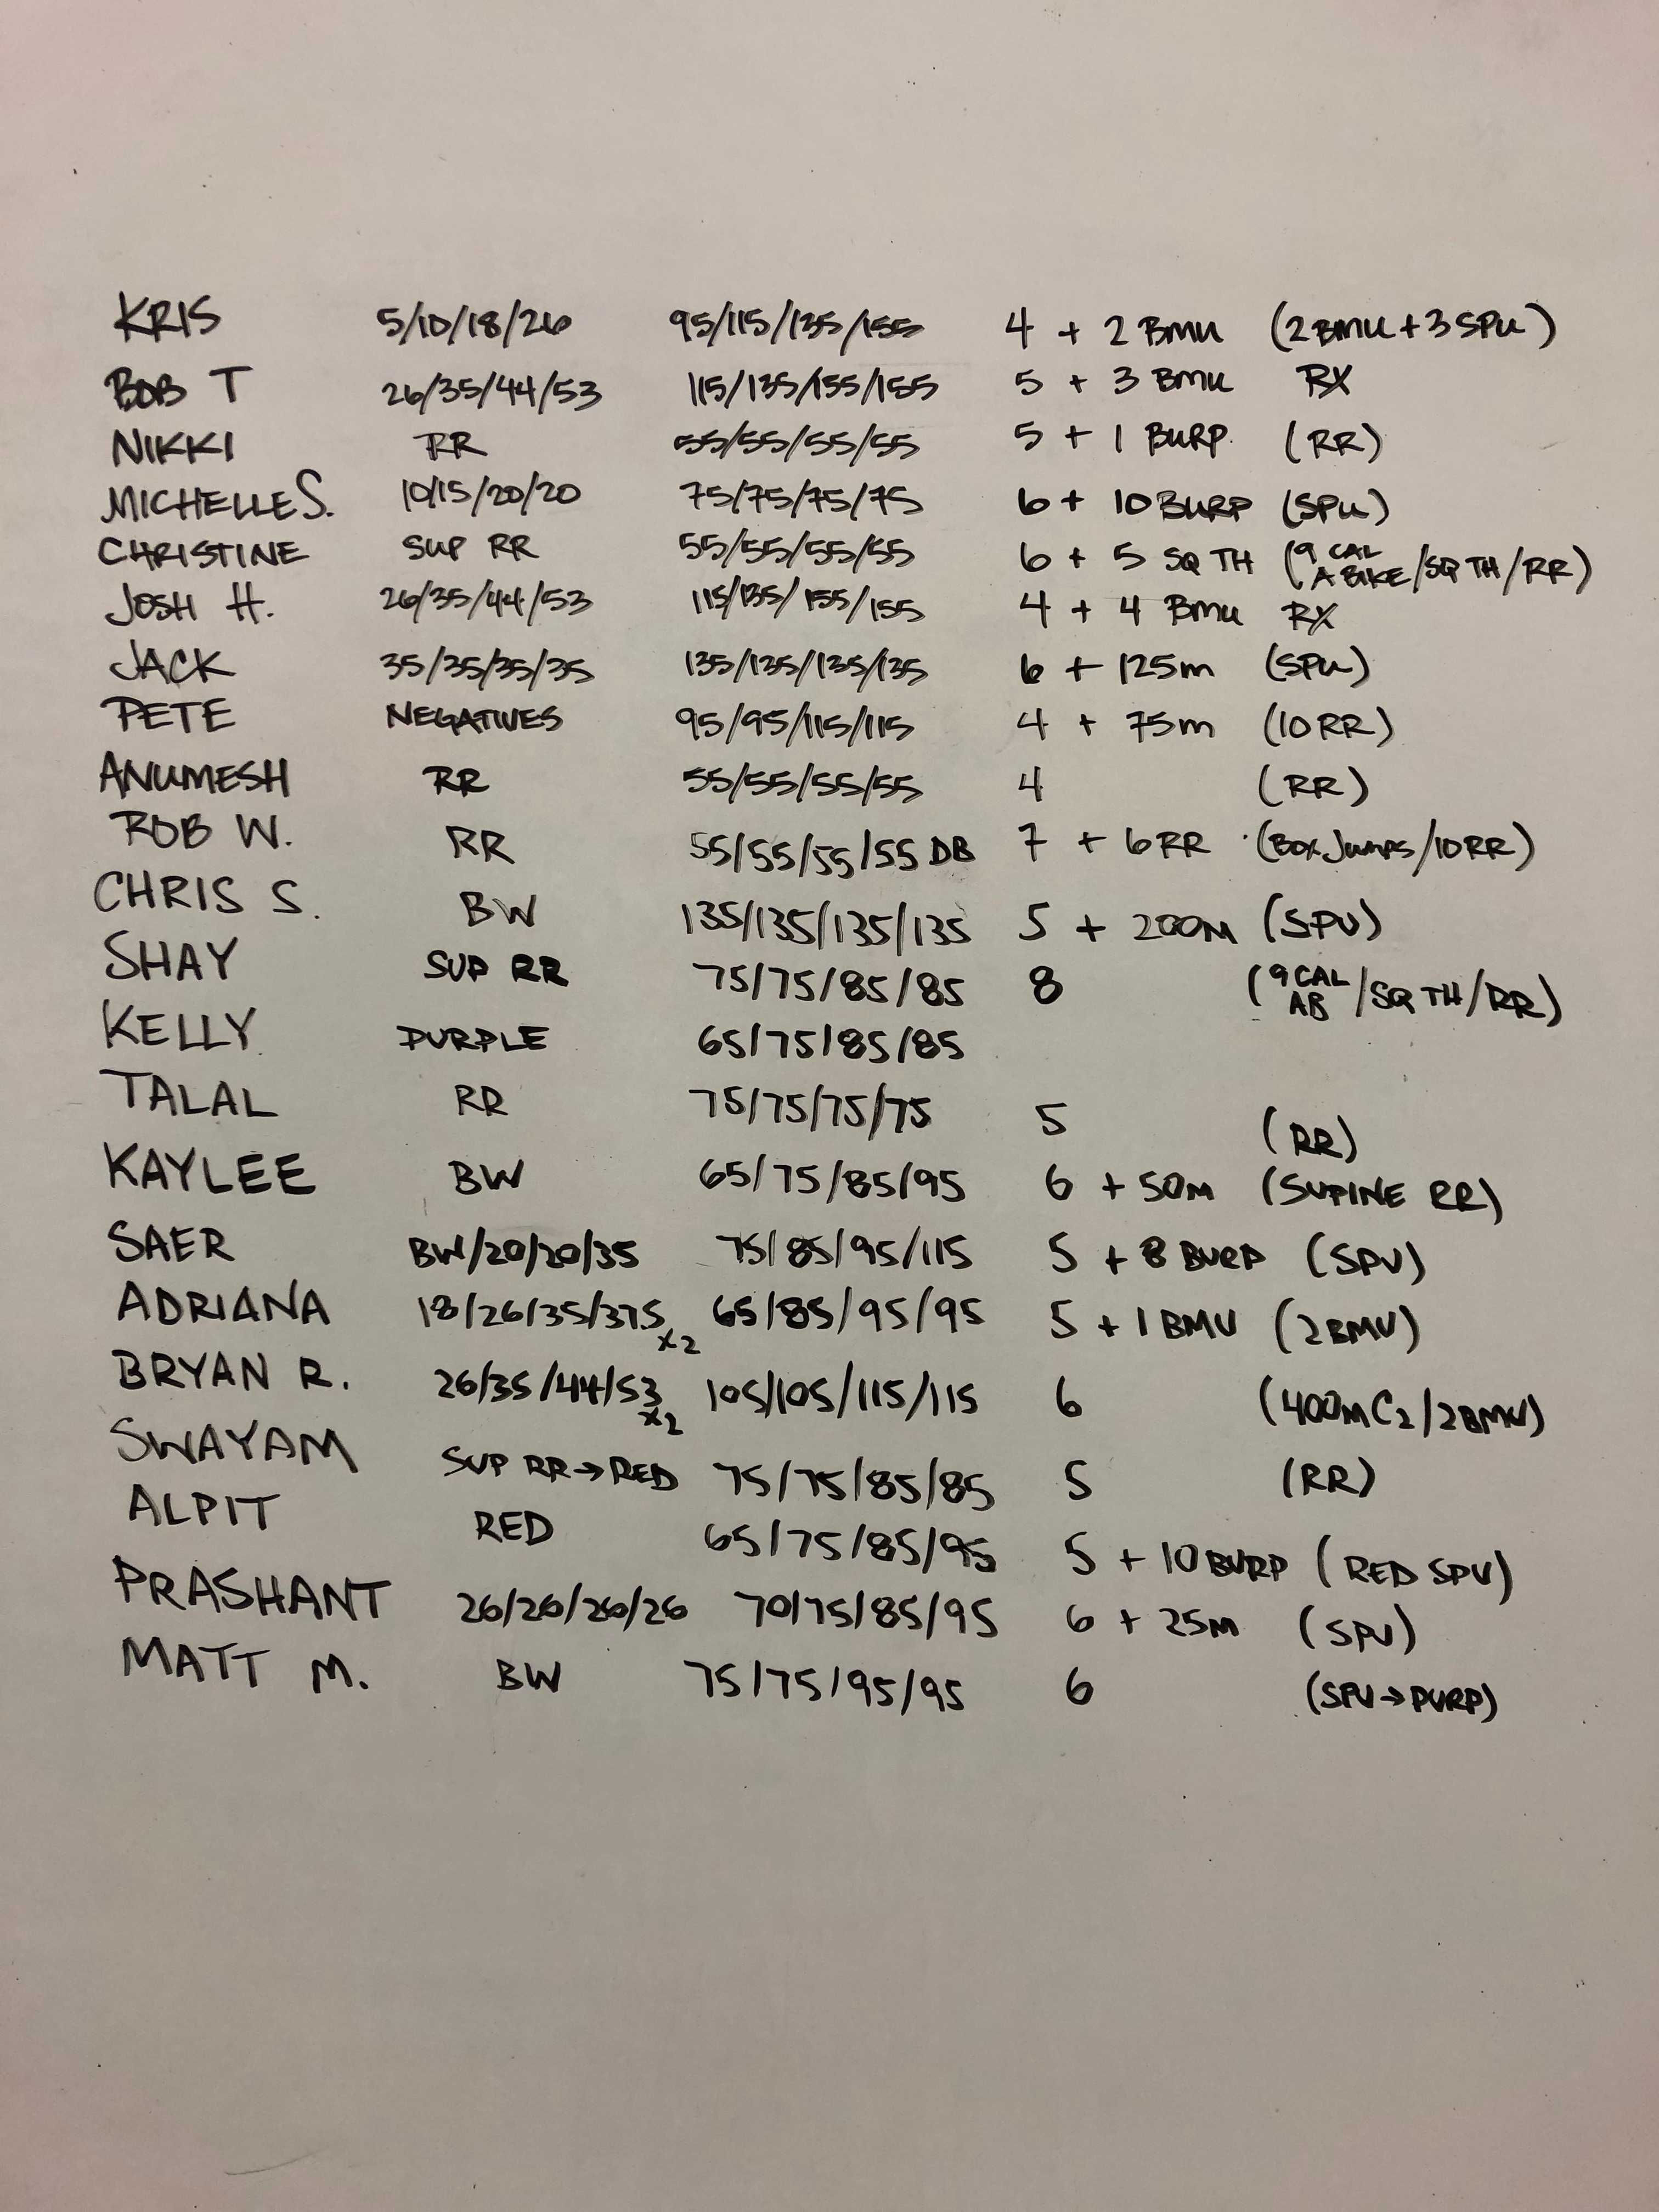 KRIS 5/10/18/26 95/115/135/155 4 + 2 BMU (2 BMU + 3 SPU)
BOB T 26/35/44/53 115/135/155/155 5 + 3 BMU RX
NIKKI RR 55/55/55/55 5 + 1 BURP. (RR)
MICHELLE S. 10/15/20/20 75/75/75/75 6 + 10 BURP (SPU)
CHRISTINE SUP RR 55/55/55/55 6 + 5 SQ TH (9 CAL A BIKE/SQ TH/RR)
JOSH H. 26/35/44/53 115/135/155/155 4 + 4 BMU RX
JACK 35/35/35/35 135/135/135/135 6 + 125m (SPU)
PETE NEGATIVES 95/95/115/115 4 + 75m (10 RR)
ANUMESH RR 55/55/55/55 4 (RR)
ROB W. RR 55/55/55/55 DB 7 + 6 RR (BOX JUMPS/10 RR)
CHRIS S. BW 135/135/135/135 5 + 200M (SPU)
SHAY SUP RR 75/75/85/85 8 (9 CAL AB/SQ TH/RR)
KELLY PURPLE 65/75/85/85
TALAL RR 75/75/75/75 5 (RR)
KAYLEE BW 65/75/85/95 6 + 50M (SUPINE RR)
SAER BW/20/20/35 75/85/95/115 5 + 8 BURP (SPU)
ADRIANA 18/26/35/37.5 x2 65/85/95/95 5 + 1 BMU (2 BMU)
BRYAN R. 26/35/44/53 x2 105/105/115/115 6 (400M C2/2 BMU)
SWAYAM SUP RR→RED 75/75/85/85 5 (RR)
ALPIT RED 65/75/85/95 5 + 10 BURP (RED SPU)
PRASHANT 26/26/26/26 70/75/85/95 6 + 25M (SPU)
MATT M. BW 75/75/95/95 6 (SPU→PURP)